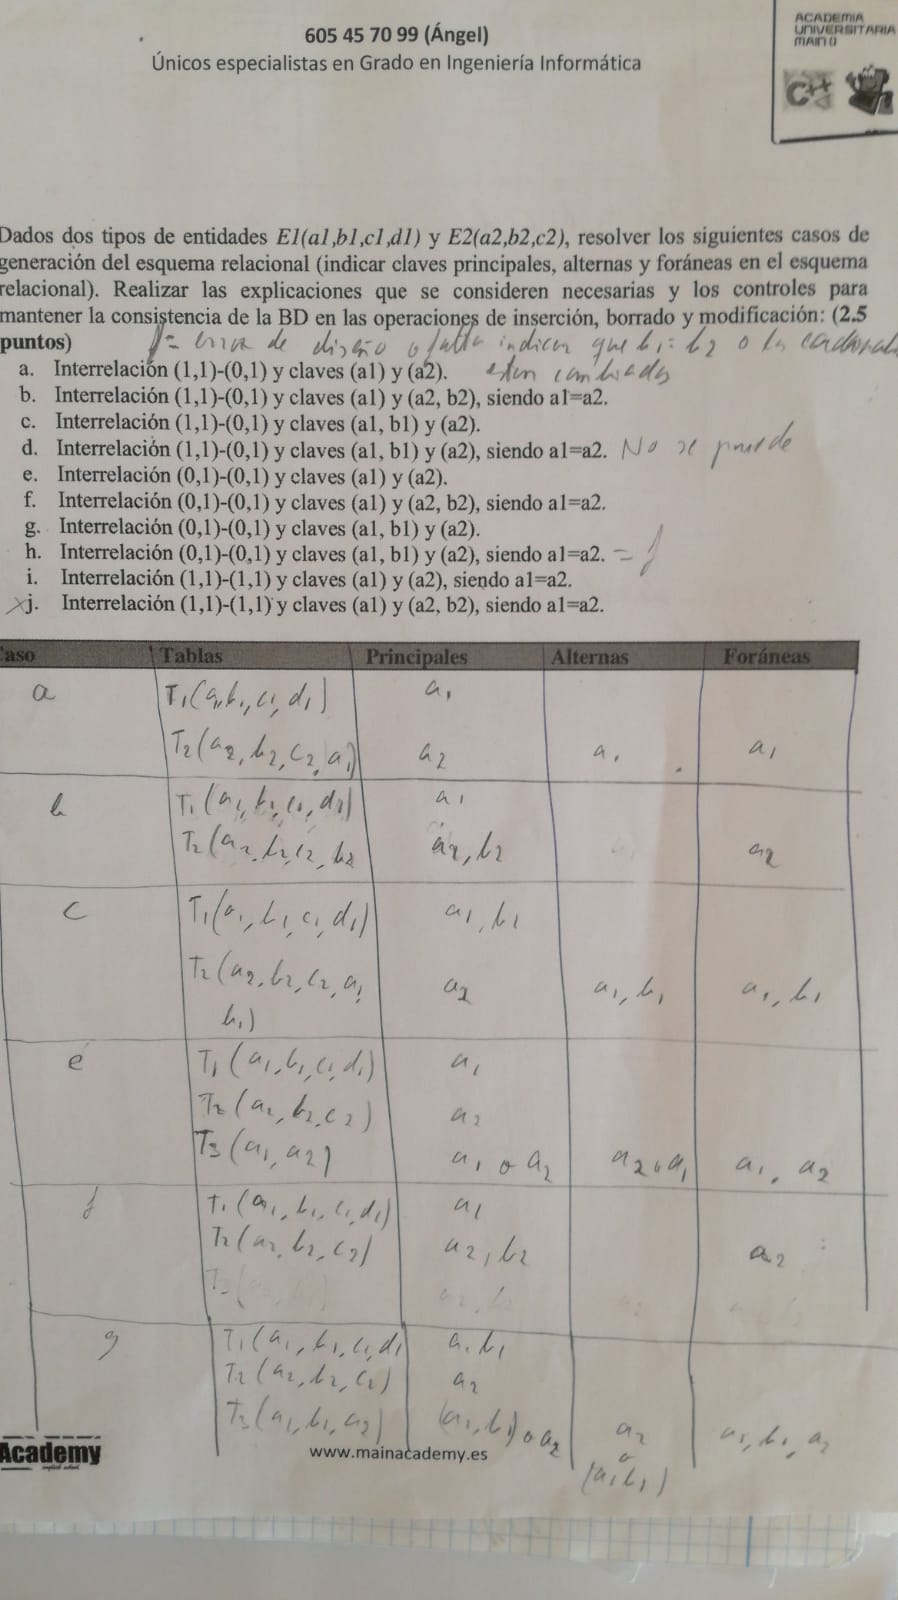 605 45 70 99 (Ángel)
Únicos especialistas en Grado en Ingeniería Informática
ACADEMIA
UNIVERSITARIA
MAIN()
C++
Dados dos tipos de entidades E1(a1,b1,c1,d1) y E2(a2,b2,c2), resolver los siguientes casos de
generación del esquema relacional (indicar claves principales, alternas y foráneas en el esquema
relacional). Realizar las explicaciones que se consideren necesarias y los controles para
mantener la consistencia de la BD en las operaciones de inserción, borrado y modificación: (2.5
puntos) f = error de diseño o falta indicar que b1 = b2 o las
a. Interrelación (1,1)-(0,1) y claves (a1) y (a2). estan cambiadas
b. Interrelación (1,1)-(0,1) y claves (a1) y (a2, b2), siendo a1=a2.
c. Interrelación (1,1)-(0,1) y claves (a1, b1) y (a2).
d. Interrelación (1,1)-(0,1) y claves (a1, b1) y (a2), siendo a1=a2. No se puede
e. Interrelación (0,1)-(0,1) y claves (a1) y (a2).
f. Interrelación (0,1)-(0,1) y claves (a1) y (a2, b2), siendo a1=a2.
g. Interrelación (0,1)-(0,1) y claves (a1, b1) y (a2).
h. Interrelación (0,1)-(0,1) y claves (a1, b1) y (a2), siendo a1=a2. = f
i. Interrelación (1,1)-(1,1) y claves (a1) y (a2), siendo a1=a2.
xj. Interrelación (1,1)-(1,1) y claves (a1) y (a2, b2), siendo a1=a2.
aso Tablas Principales Alternas Foráneas
a T1(a1,b1,c1,d1) a1
T2(a2,b2,c2,a1) a2 a1 a1
b T1(a1,b1,c1,d1) a1
T2(a2,b2,c2,b2 a2,b2 a2
c T1(a1,b1,c1,d1) a1,b1
T2(a2,b2,c2,a1 a2 a1,b1 a1,b1
b1)
e T1(a1,b1,c1,d1) a1
T2(a2,b2,c2) a2
T3(a1,a2) a1 o a2 a2 o a1 a1, a2
f T1(a1,b1,c1,d1) a1
T2(a2,b2,c2) a2,b2 a2
g T1(a1,b1,c1,d1 a1,b1
T2(a2,b2,c2) a2
T3(a1,b1,a2) (a1,b1) o a2 a2 a1,b1,a2
o
(a1b1)
Academy
www.mainacademy.es